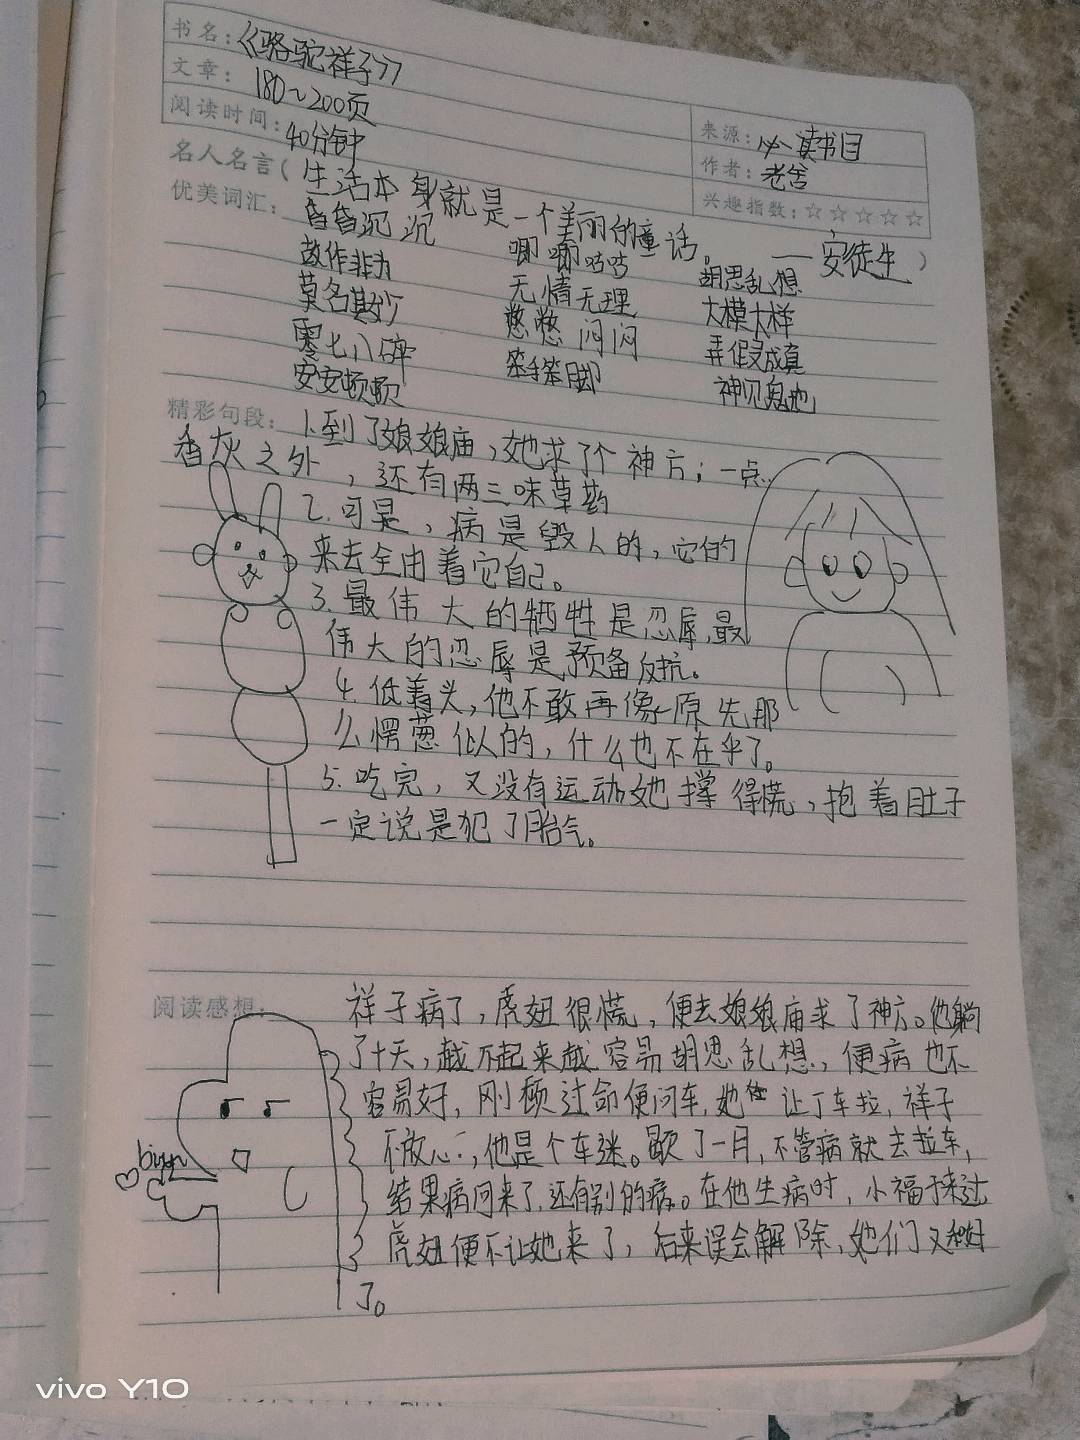 书名：《骆驼祥子》
文章：180~200页
阅读时间：40分钟
来源：必读书目
作者：老舍
兴趣指数：☆☆☆☆☆
名人名言（生活本身就是一个美丽的童话。——安徒生）
优美词汇：昏昏沉沉 唧唧咕咕 胡思乱想
故作非为 无情无理 大模大样
莫名其妙 憋憋闷闷 弄假成真
零七八碎 笨手笨脚 神见鬼地
安安顿顿
精彩句段：1.到了娘娘庙，她求了个神方；一点
香灰之外，还有两三味草药
2.可是，病是毁人的，它的
来去全由着它自己。
3.最伟大的牺牲是忍辱，最
伟大的忍辱是预备反抗。
4.低着头，他不敢再像原先那
么愣葱似的，什么也不在乎了。
5.吃完，又没有运动她撑得慌，抱着肚子
一定说是犯了胎气。
阅读感想：祥子病了，虎妞很慌，便去娘娘庙求了神方。他躺
了十天，越不起来越容易胡思乱想，便病也不
容易好，刚顾过命便问车，她让丁车拉，祥子
不放心，他是个车迷。歇了一月，不管病就去拉车，
结果病回来了，还有别的病。在他生病时，小福子来过
虎妞便不让她来了，后来误会解除，她们又和好
了。
biyu
vivo Y10